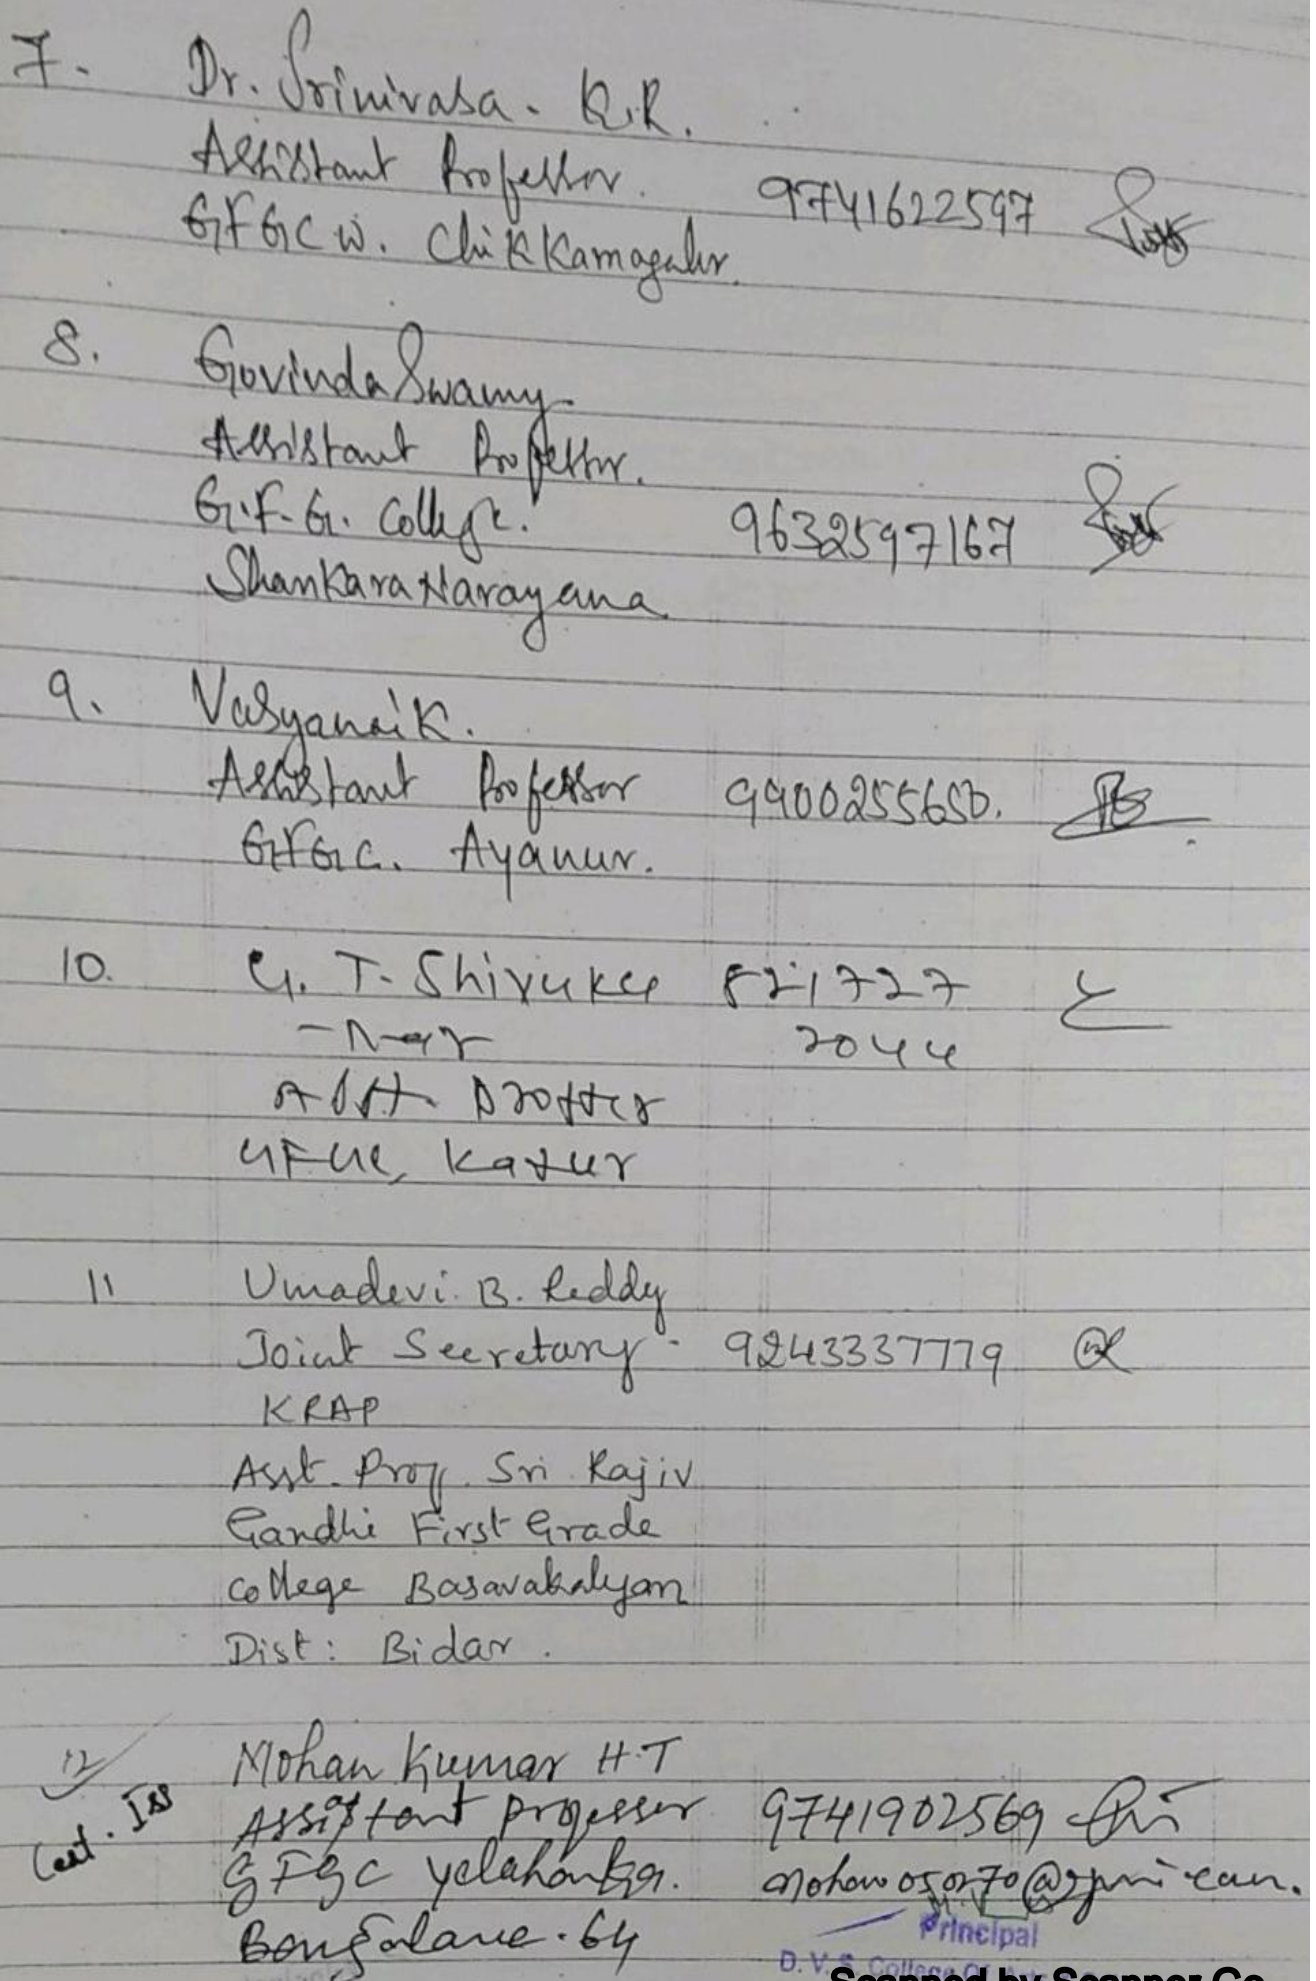 7. Dr. Srinivasa. K.R.
Assistant Professor.
9741622597
GFGCW. Chikkamagalur.
8. GovindaSwamy.
Assistant Professor.
G.F.G. College.
9632597167
ShankaraNarayana
9. Vasyanaik.
Assistant Professor 9900255650.
GFGC. Ayanur.
10. G. T. Shivuku 821727
-mar 2044
Asst. Professor
GFGC, Kadur
11 Umadevi. B. Reddy
Joint Secretary. 9243337779
KRAP
Asst. Prof. Sri Rajiv
Gandhi First Grade
College Basavakalyan
Dist: Bidar.
12 Mohan Kumar H.T
Cert. Iss Assistant professor 9741902569
GFGC Yelahanka.
Bangalore. 64
Principal
D. V. S. College Of
Scanned by Scanner Go